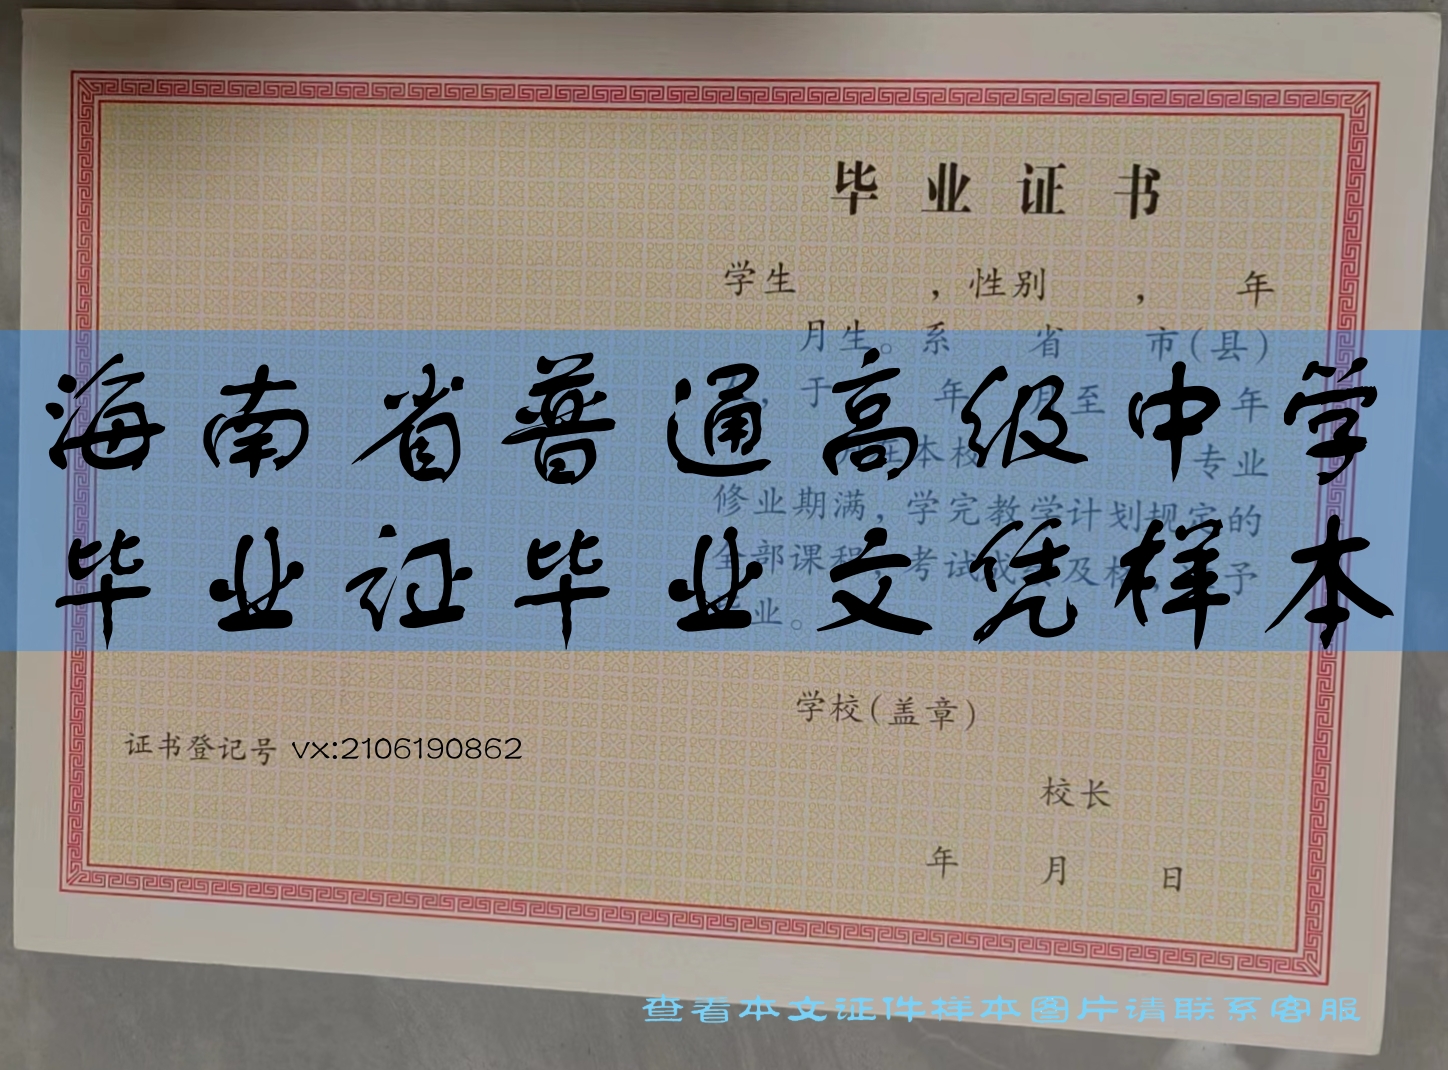 毕业证书
学生 ，性别 ， 年
月生。系 省 市(县)
，于 年 月至 年
在本校 专业
海南省普通高级中学
修业期满，学完教学计划规定的
全部课程，考试成绩及格， 予
毕业证毕业文凭样本
毕业。
学校(盖章)
证书登记号 vx:2106190862
校长
年 月 日
查看本文证件样本图片请联系客服